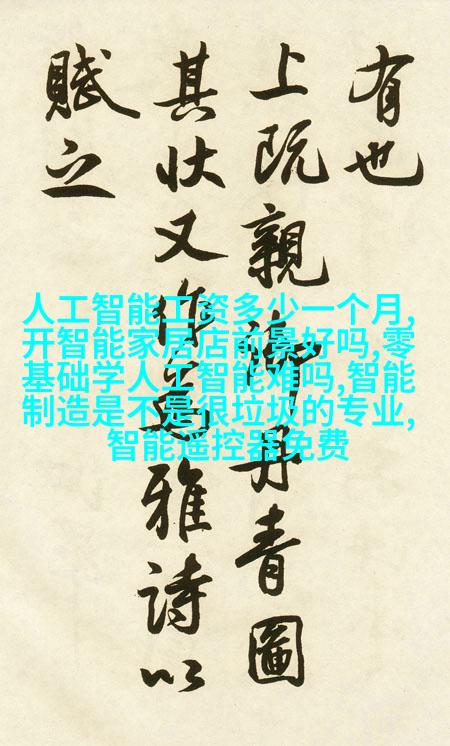 有也
上既親御丹青圖
其狀又作為雅詩以
賦之
人工智能工资多少一个月,
开智能家居店前景好吗,零
基础学人工智能难吗,智能
制造是不是很垃圾的专业,
智能遥控器免费